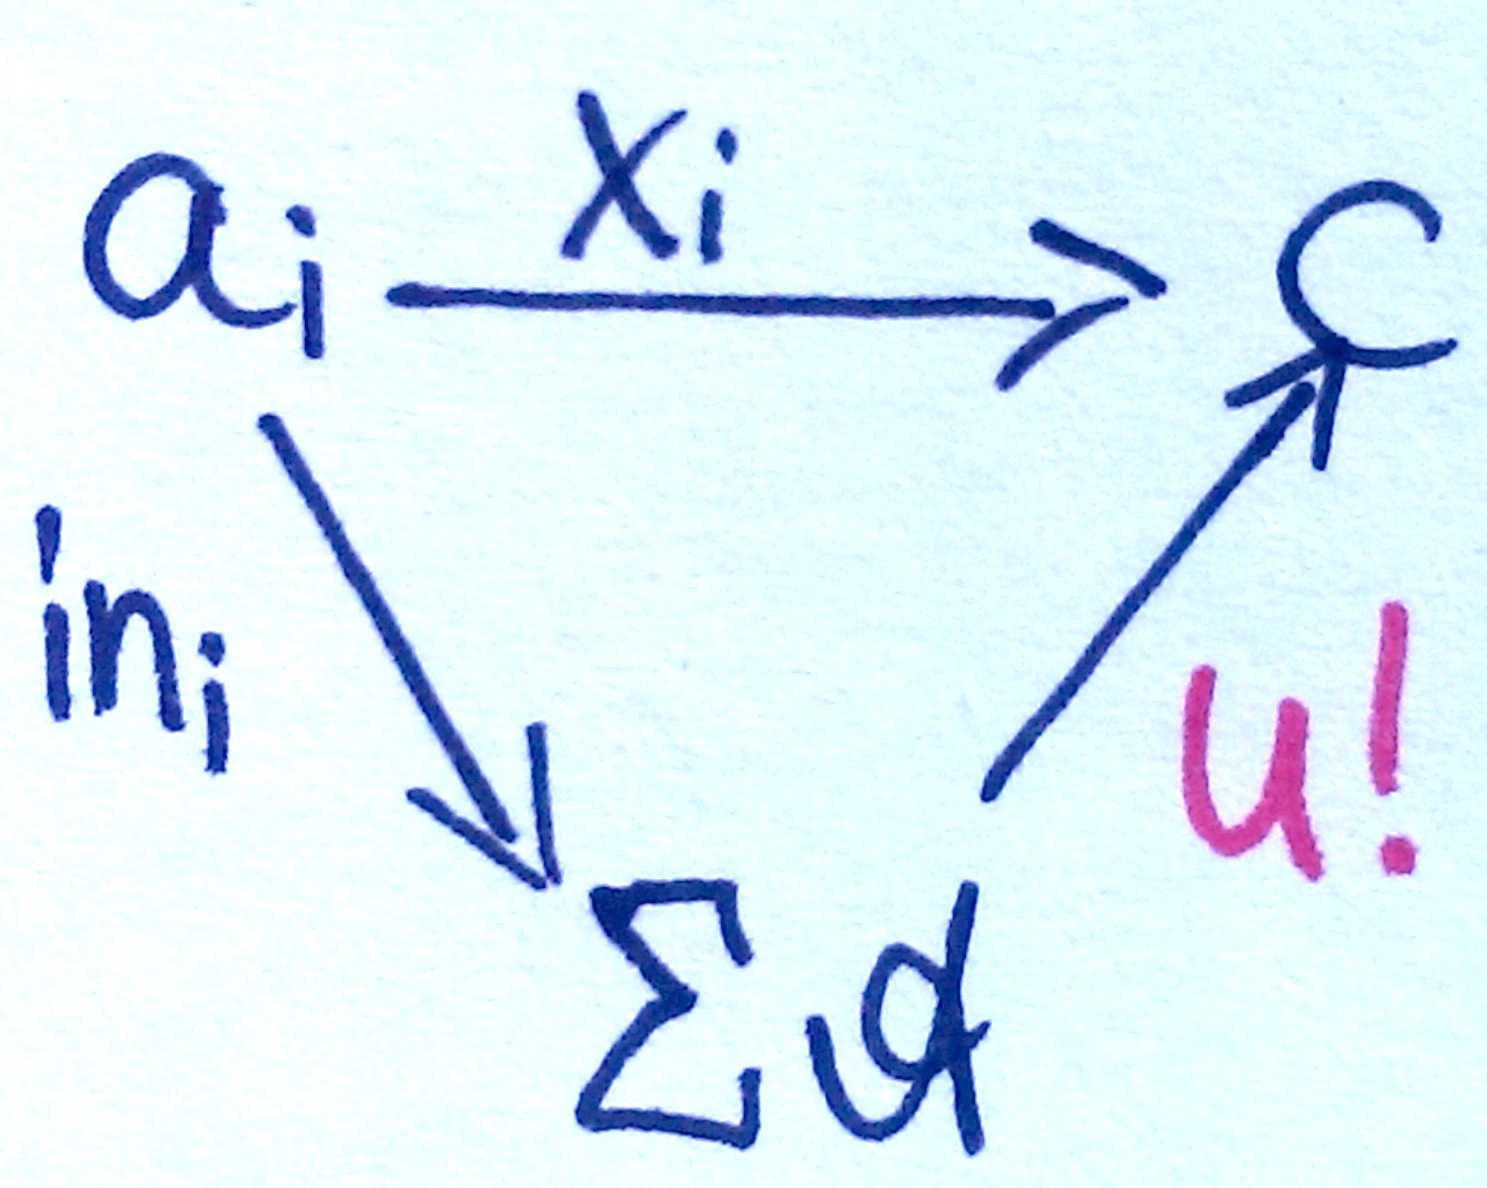 aᵢ xᵢ C
inᵢ u!
Σ𝒜